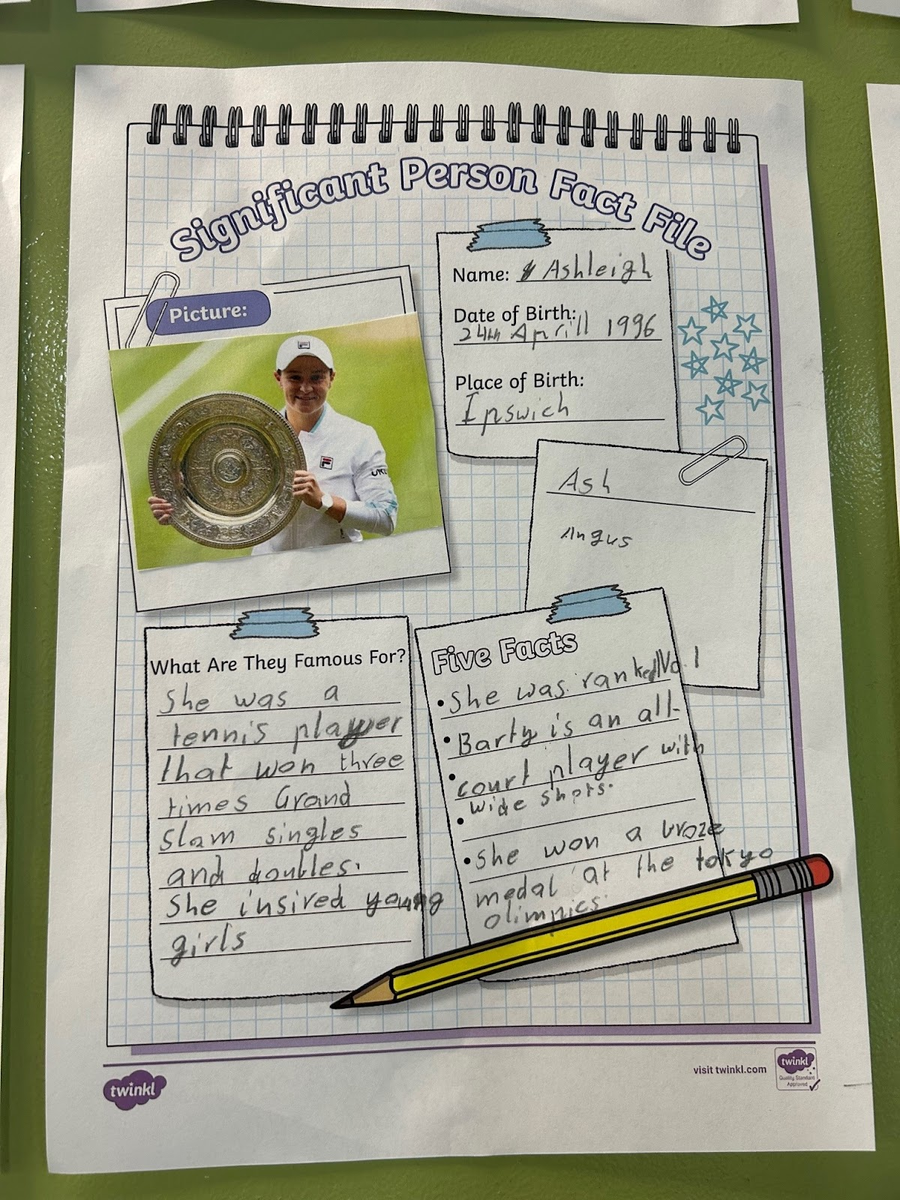 Significant Person Fact File
Picture:
Name: Ashleigh
Date of Birth:
24th Aprill 1996
Place of Birth:
Ipswich
Ash
Angus
What Are They Famous For?
She was a
tennis player
that won three
times Grand
Slam singles
and doubles.
She insired young
girls
Five Facts
• She was ranked No. 1
• Barty is an all-
• court player with
• wide shots.
• She won a broze
medal at the tokyo
olimpics.
twinkl
visit twinkl.com
twinkl
Quality Standard
Approved